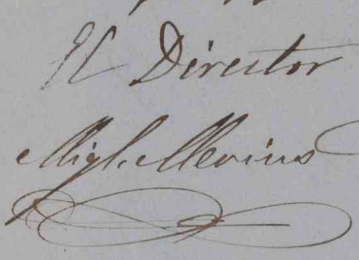 El Director
Migl. Merino